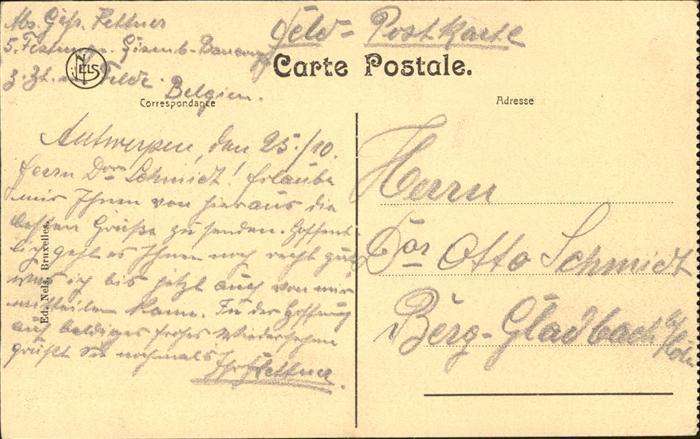 Abs. Gefr. Kettner Feld-Postkarte
5. Festungs- Eisenb.-Baucomp.
NELS
z. Zt. im Felde.
Belgien.
Carte Postale.
Correspondance
Adresse
Antwerpen, den 25./10.
Herrn Dor Schmidt! Erlaube
mir Ihnen von hieraus die
besten Grüße zu senden. Hoffent-
lich geht es Ihnen noch recht gut
was ich bis jetzt auch von mir
mitteilen kann. In der Hoffnung
auf baldiges frohes Wiedersehen
grüßt Sie nochmals Ihr Kettner.
Ed. Nels, Bruxelles.
Herrn
Dor Otto Schmidt
Berg-Gladbach b/Köln